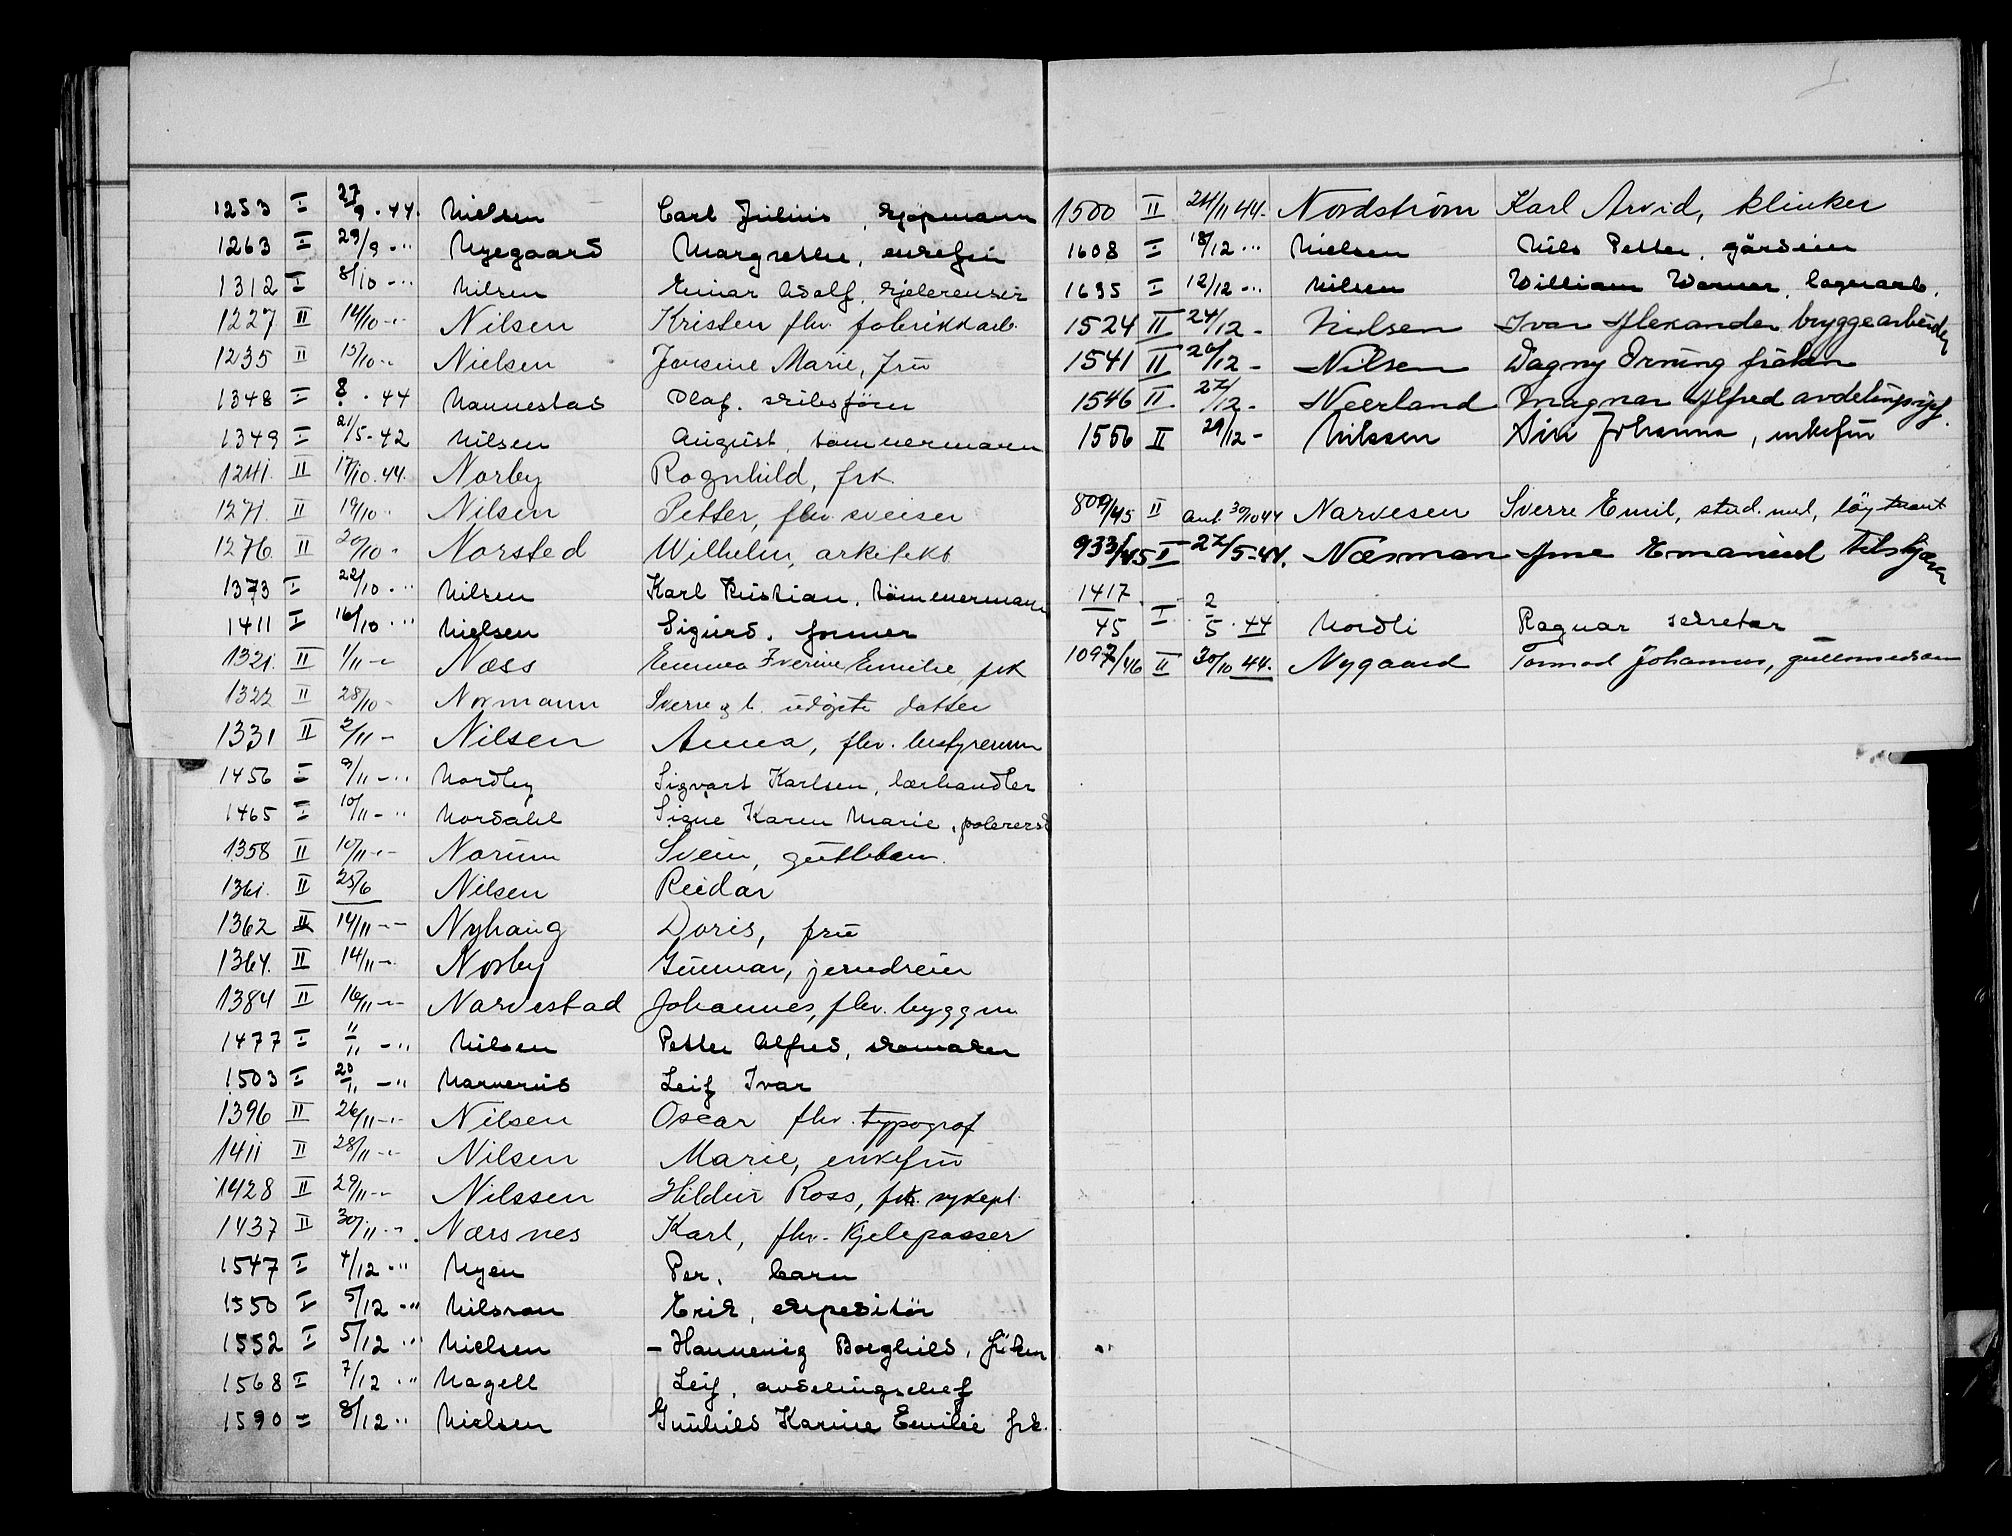 1253 I 27/9 · 44. Nielsen Carl Julius, kjøpmann
1263 I 29/9 - " Nyegaard Margrethe, enkefru
1312 I 8/10 - " Nilsen Einar Adolf, kjelerenser
1227 II 14/10 - " Nilsen Kristen flv. fabrikkarb.
1235 II 15/10 - Nielsen Jensine Marie, fru
1348 I 8 · 44 Nannestad Olaf. skibsfører
1349 I 21/5 - 42 Nilsen August, tømmermann
1241. II 17/10. 44. Norby Ragnhild, frk.
1271. II 19/10 - Nilsen Petter, flv. sveiser
1276. II 20/10 - Norsted Wilhelm, arkitekt
1373 I 22/10 - " Nilsen Karl Kristian, tømmermann
1411 I 16/10 - " Nielsen Sigurd, former
1321. II 1/11 - " Næss Emma Iverine Emilie, frk
1322 II 28/10 - Normann Sverre g b. udøpte datter
1331 II 2/11 - Nilsen Anna, flv. bestyrerinne
1456 I 9/11 - " Nordby Sigvart Karlsen, lærhandler
1465 I 10/11 - " Nordahl Signe Karen Marie,
1358 II 10/11 - " Norum Svein, guttebarn.
1361. II 25/6 Nilsen Reidar
1362 II 14/11 - " Nyhaug Doris, fru
1364. II 14/11 - " Norby Gunnar, jerndreier
1384 II 16/11 - " Narvestad Johannes, flv. byggm.
1477 I 11/11 - " Nilsen Petter Alfred, skomaker
1503 I 20/11 - " Narverud Leif Ivar
1396 II 26/11 - " Nilsen Oscar flv. typograf
1411 II 28/11 - " Nilsen Marie, enkefru
1428 II 29/11 - " Nilssen Hildur Ross, frk. sykepl.
1437 II 30/11 - " Næsnes Karl, flv. kjelepasser
1547 I 4/12 - " Nyen Per, barn
1550 I 5/12 - " Nilsson Erik, ekspeditør
1552 I 5/12 - " Nielsen - Hannevig Borghild, frøken
1568 I 7/12 - " Nagell Leif, avdelingschef
1590 I 8/12 - " Nielsen Gunhild Karine Emilie frk.
1500 II 24/11 44. Nordstrøm Karl Arvid, klinker
1608 I 18/12 - " Nielsen Nils Petter, gårdeier
1635 I 12/12 - " Nilsen William Werner, lagerarb.
1524 II 24/12 - Nielsen Ivar Alexander bryggearbeider
1541 II 26/12 - Nilsen Dagny Orning frøken
1546 II 27/12 - Neerland Ragnar Alfred avdelingssjef.
1556 II 29/12 - Nilssen Siri Johanna, enkefru
800/45 II Ant. 30/10 44 Narvesen Sverre Emil, stud. med, løytnant
933/45 I 27/5 - 44. Næsman Arne Emanuel tilskjærer
1417/45 I 2/5 · 44 Nordli Ragnar sekretær
1097/46 II 30/10 44. Nygaard Tormod Johannes, gullsmedsvenn